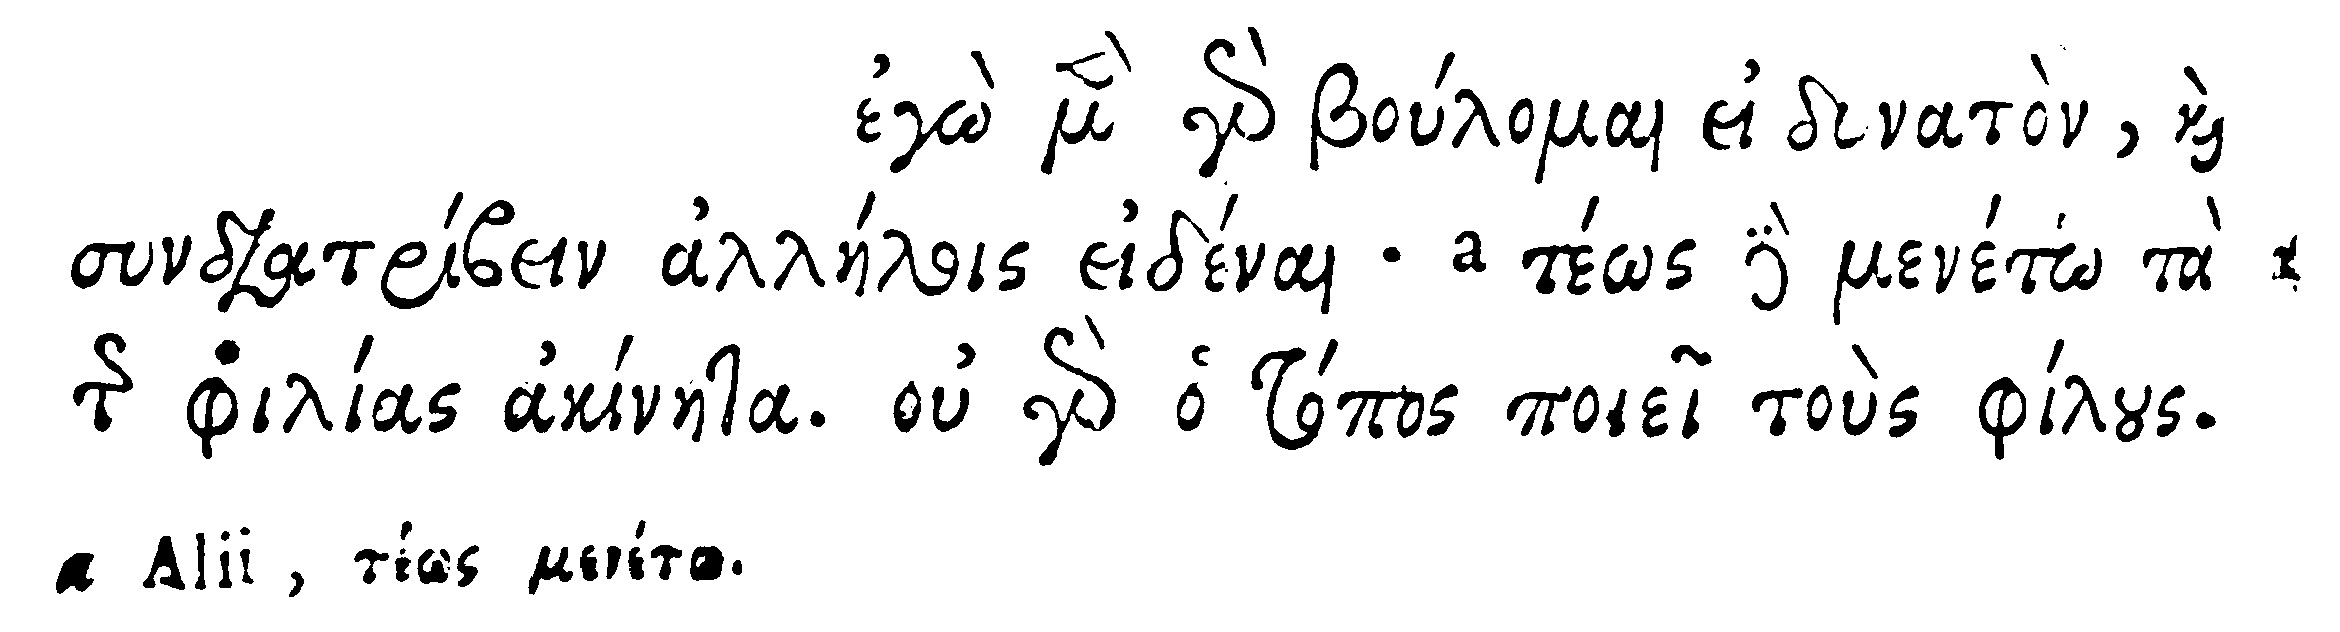 ἐγὼ μὲν γὰρ βούλομαι εἰ δινατὸν, καὶ
συνδιατρίβειν ἀλλήλοις εἰδέναι · a τέως δὲ μενέτω τὰ
τῆς φιλίας ἀκίνητα. οὐ γὰρ ὁ τόπος ποιεῖ τοὺς φίλους.
a Alii, τέως μενέτω.